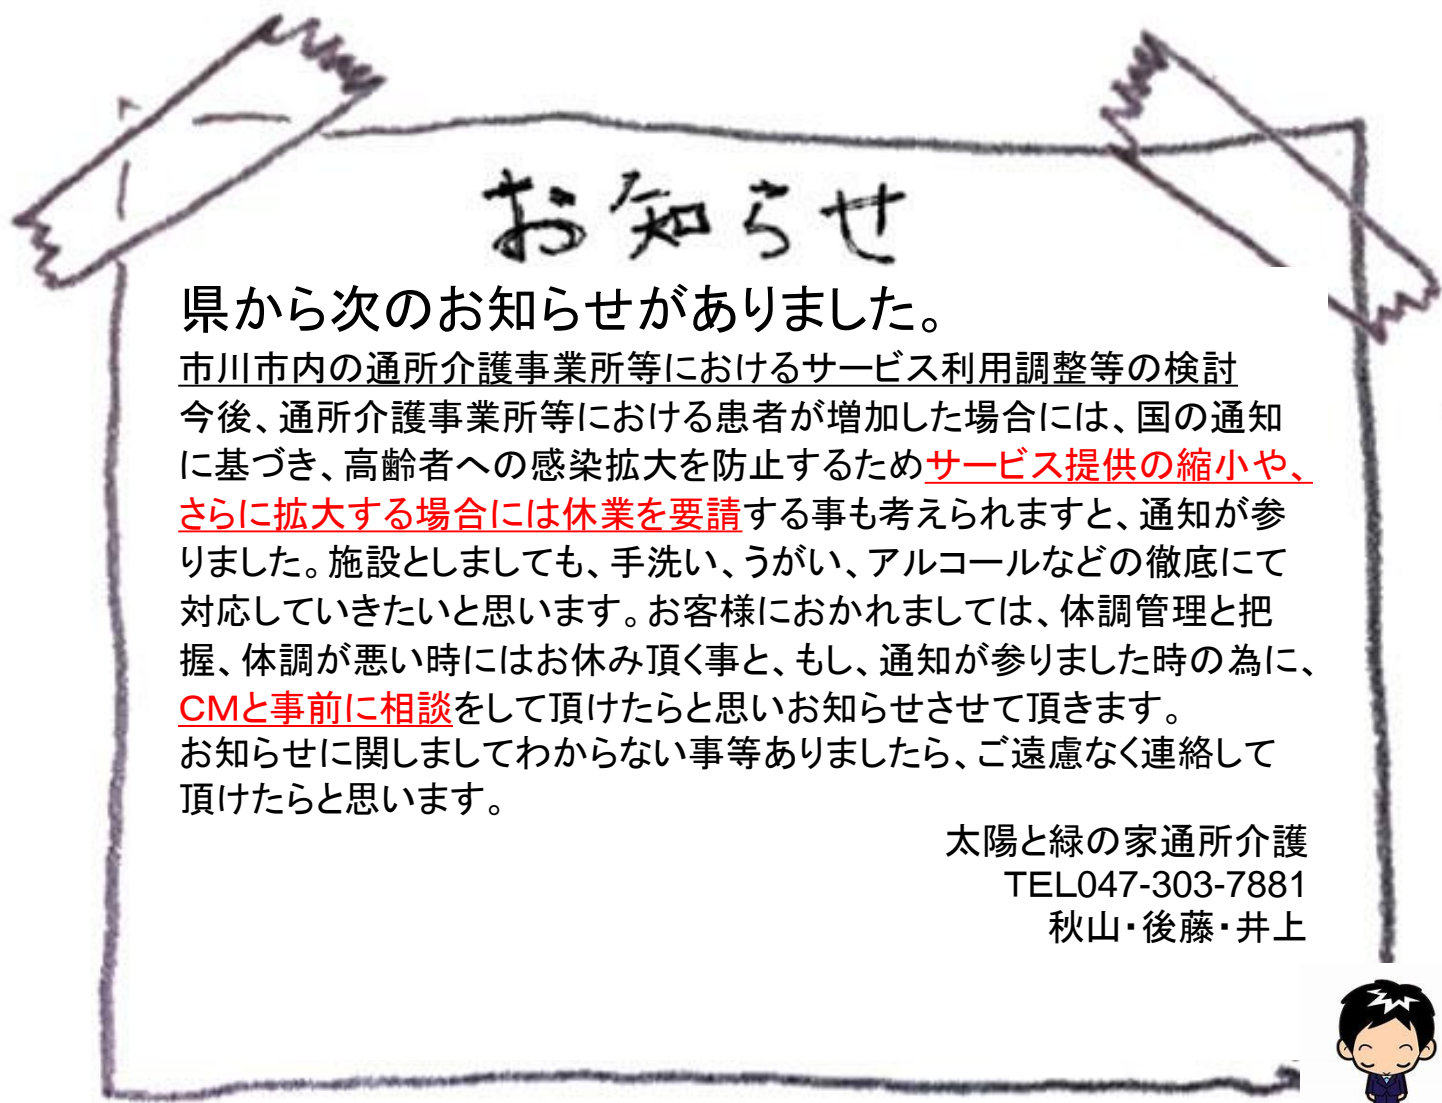 お知らせ
県から次のお知らせがありました。
市川市内の通所介護事業所等におけるサービス利用調整等の検討
今後、通所介護事業所等における患者が増加した場合には、国の通知
に基づき、高齢者への感染拡大を防止するためサービス提供の縮小や、
さらに拡大する場合には休業を要請する事も考えられますと、通知が参
りました。施設としましても、手洗い、うがい、アルコールなどの徹底にて
対応していきたいと思います。お客様におかれましては、体調管理と把
握、体調が悪い時にはお休み頂く事と、もし、通知が参りました時の為に、
CMと事前に相談をして頂けたらと思いお知らせさせて頂きます。
お知らせに関しましてわからない事等ありましたら、ご遠慮なく連絡して
頂けたらと思います。
太陽と緑の家通所介護
TEL047-303-7881
秋山・後藤・井上